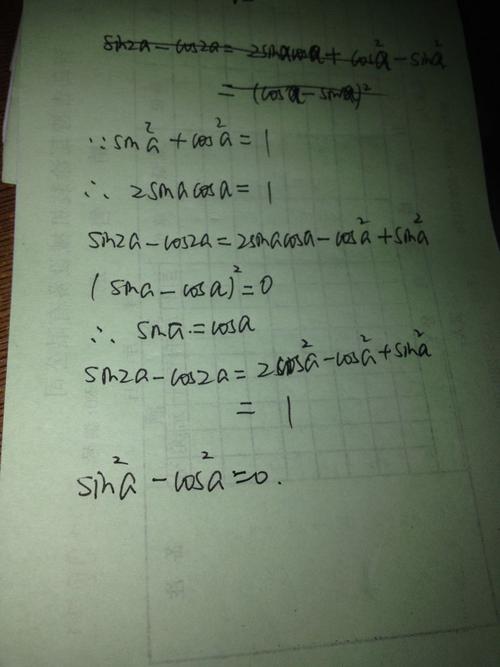 sin2a - cos2a = 2sinacosa + cos²a - sin²a
= (cosa - sina)²
∵ sin²a + cos²a = 1
∴ 2sinacosa = 1
sin2a - cos2a = 2sinacosa - cos²a + sin²a
(sina - cosa)² = 0
∴ sina = cosa
sin2a - cos2a = 2cos²a - cos²a + sin²a
= 1
sin²a - cos²a = 0.